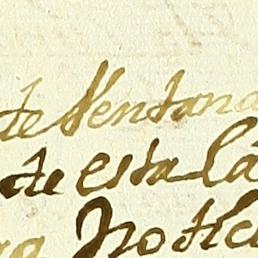 te Ventana
te esta la
notic